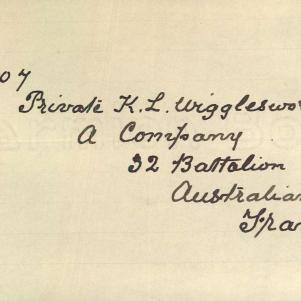 07
Private K. L. Wiggleswor
A Company
32 Battalion
Australian
Fra